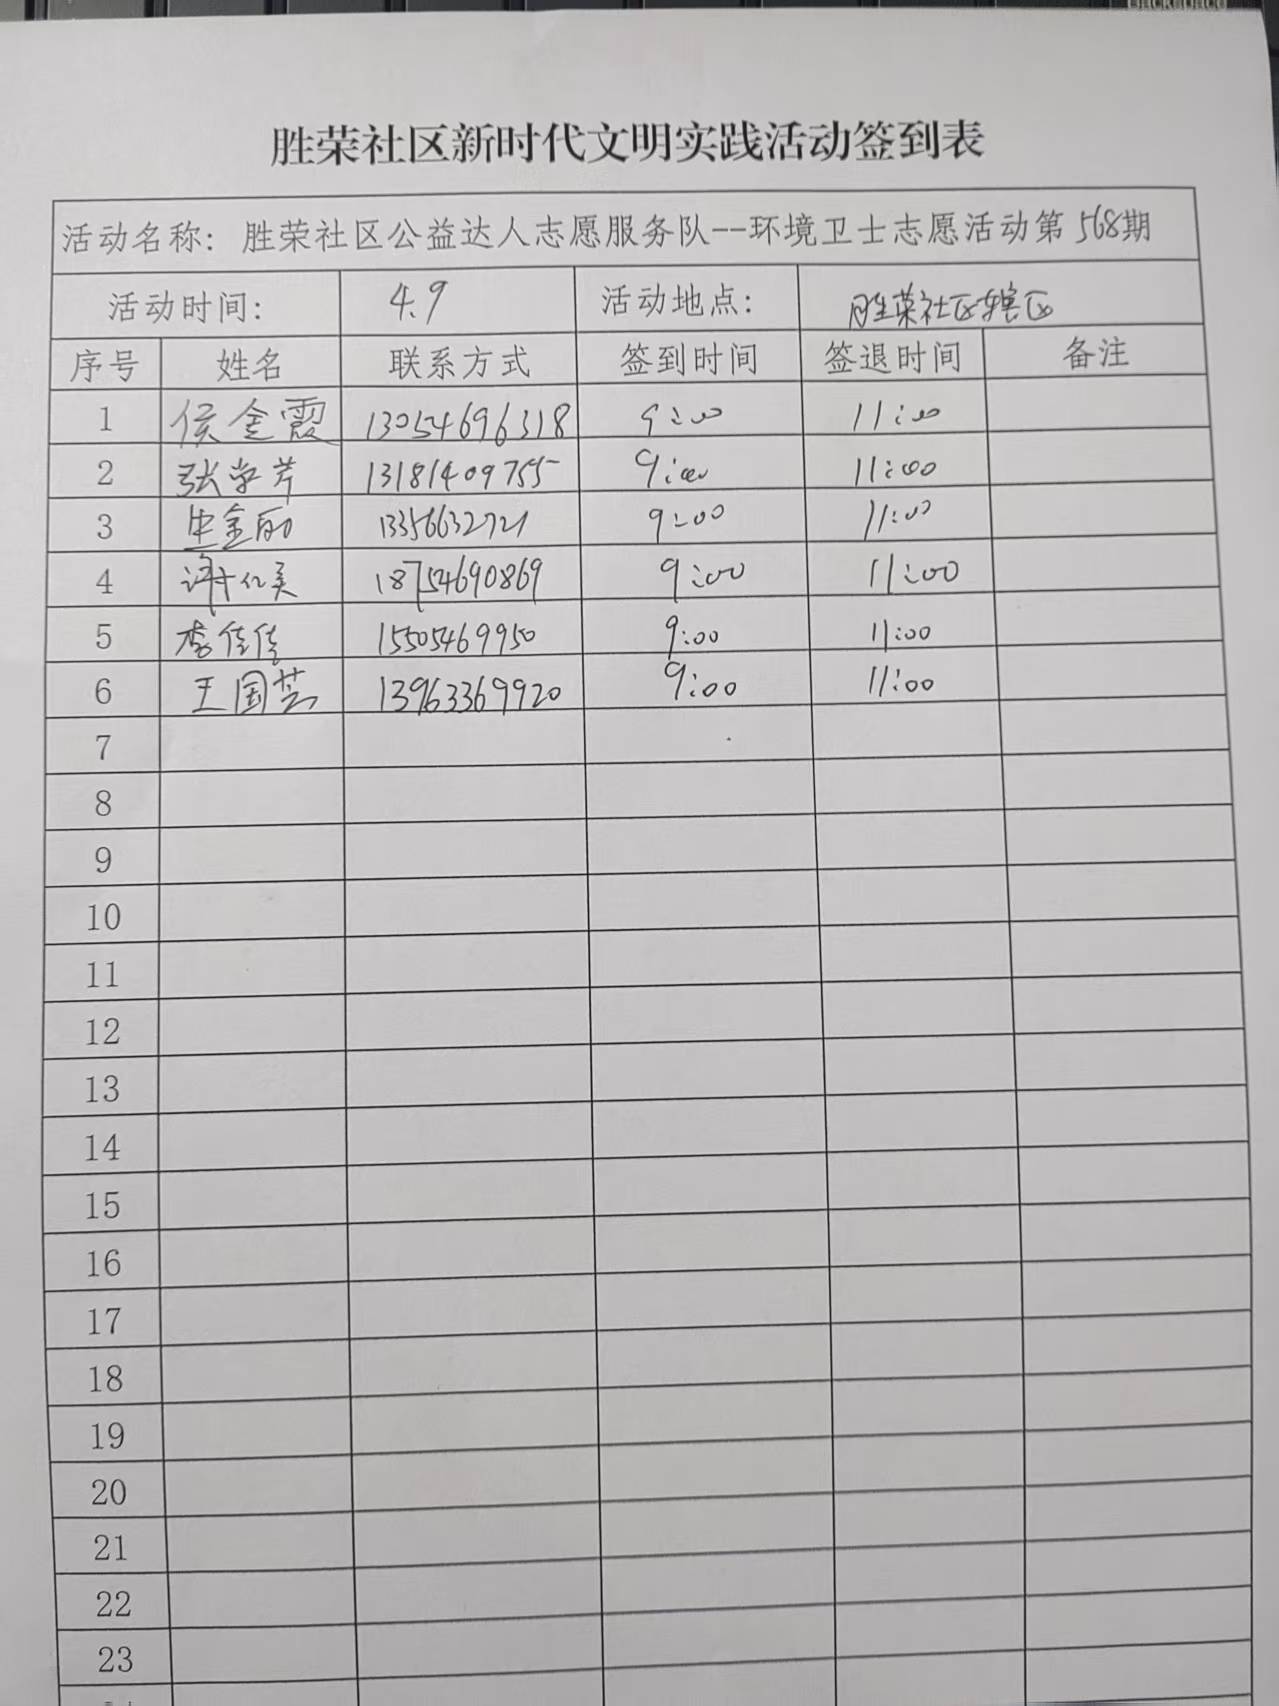 胜荣社区新时代文明实践活动签到表
活动名称：胜荣社区公益达人志愿服务队--环境卫士志愿活动第568期
活动时间： 4.9 活动地点： 胜荣社区辖区
序号 姓名 联系方式 签到时间 签退时间 备注
1 侯金霞 13054696318 9:00 11:00
2 张学芹 13181409755 9:00 11:00
3 13356632721 9:00 11:00
4 许仁美 18754690869 9:00 11:00
5 李佳佳 15505469950 9:00 11:00
6 王国芸 13963369920 9:00 11:00
7
8
9
10
11
12
13
14
15
16
17
18
19
20
21
22
23